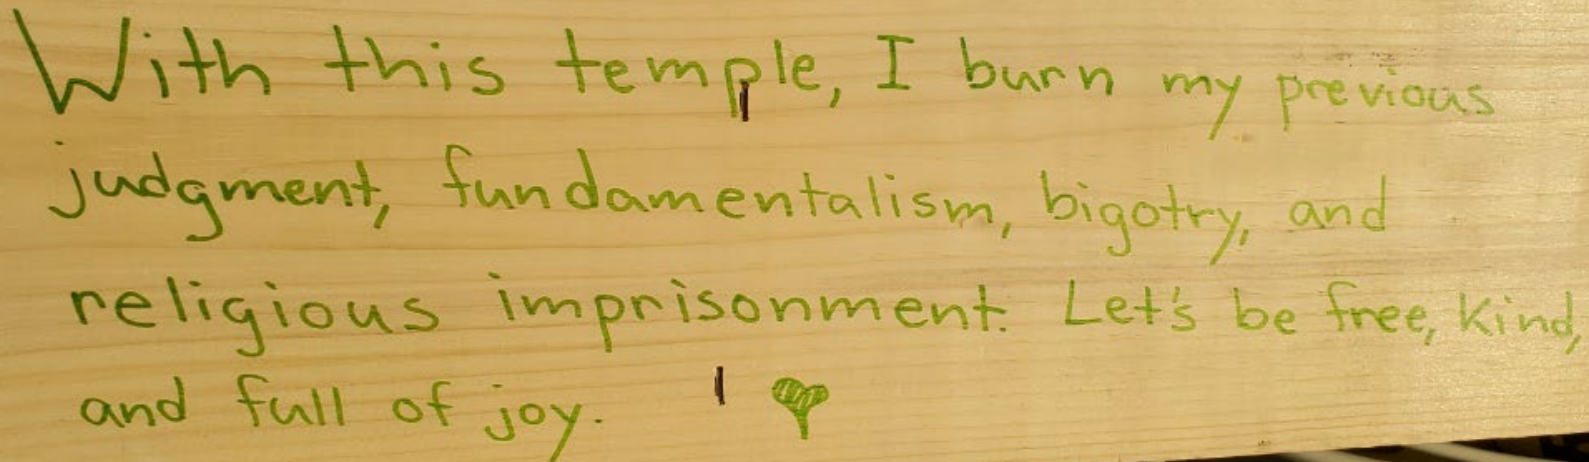 With this temple, I burn my previous
judgment, fundamentalism, bigotry, and
religious imprisonment. Let's be free, kind,
and full of joy.